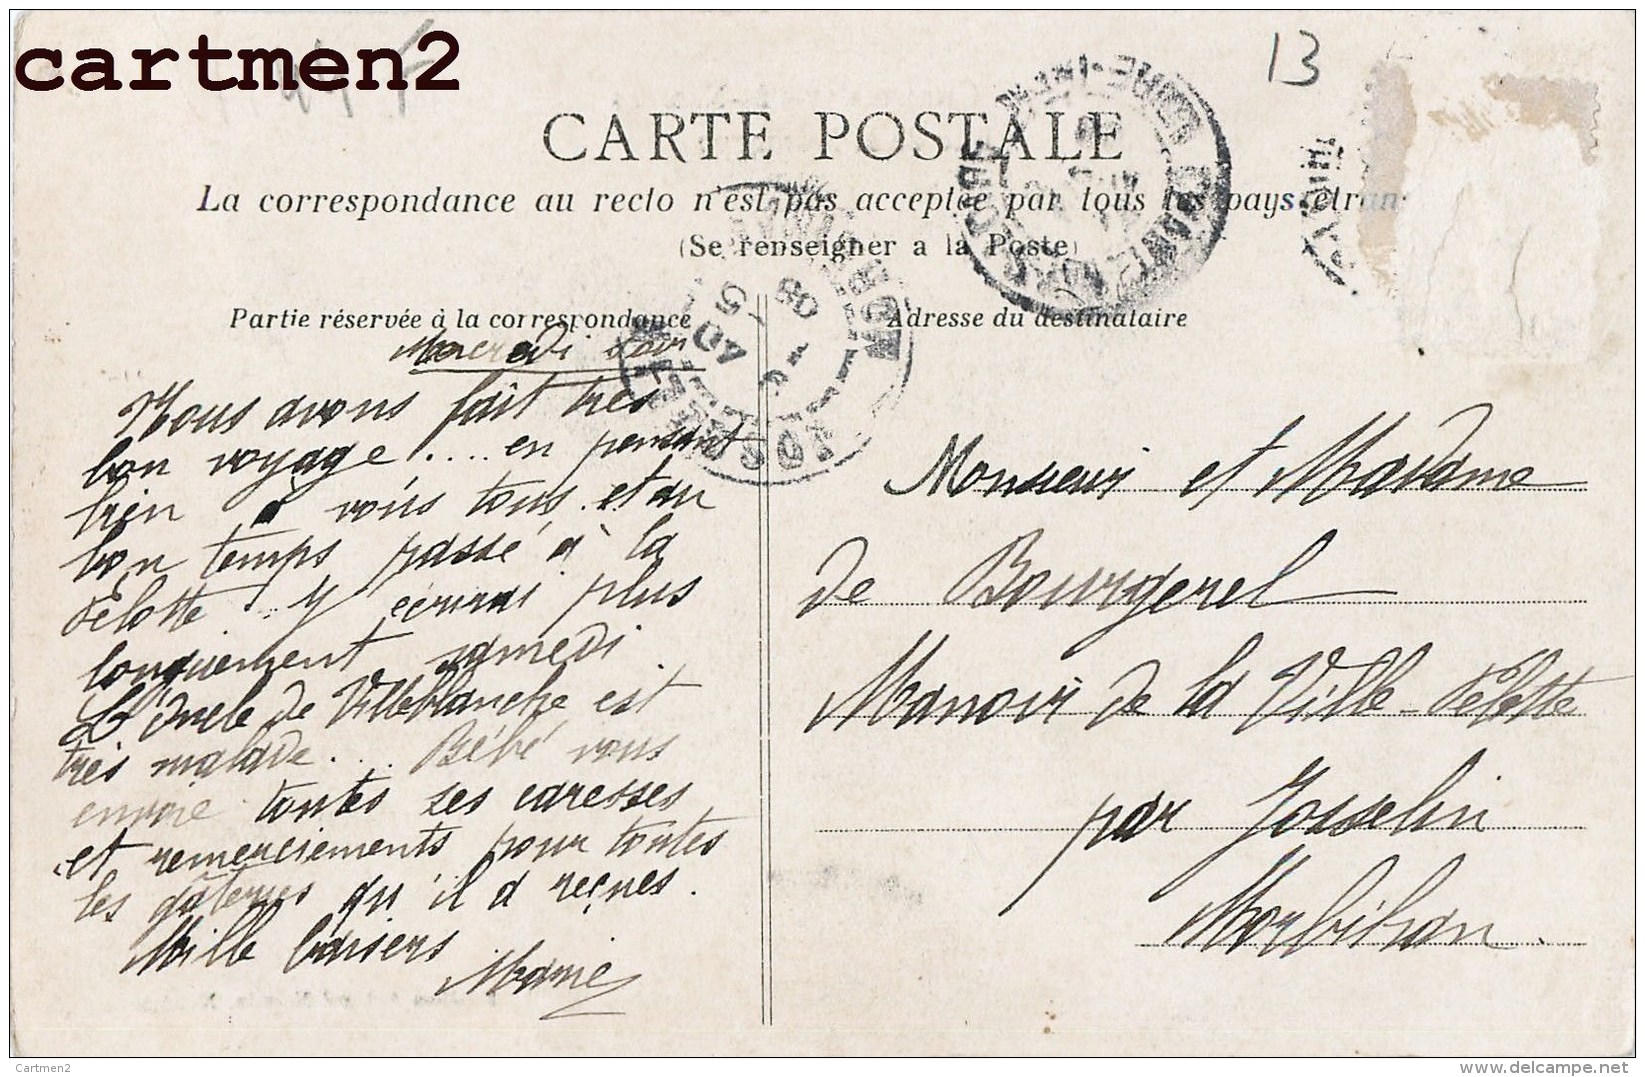 cartmen2
13
CARTE POSTALE
La correspondance au recto n'est pas acceptée par tous les pays étran
(Se renseigner a la Poste)
Partie réservée à la correspondance
Adresse du destinataire
Mercredi soir
Nous avons fait très
bon voyage.... en pensant
bien à vous tous et au
bon temps passé à la
Pelotte. J'y écrirai plus
longuement samedi.
L'Oncle de Villeblanche est
très malade... Bébé vous
envoie toutes ses caresses
et remerciements pour toutes
les gâteries qu'il a reçues.
Mille baisers
Mamie
Monsieur et Madame
de Bourgerel
Manoir de la Ville-Pelotte
par Josselin
Morbihan.
JOSSELIN
MORBIHAN
Cartmen2
www.delcampe.net